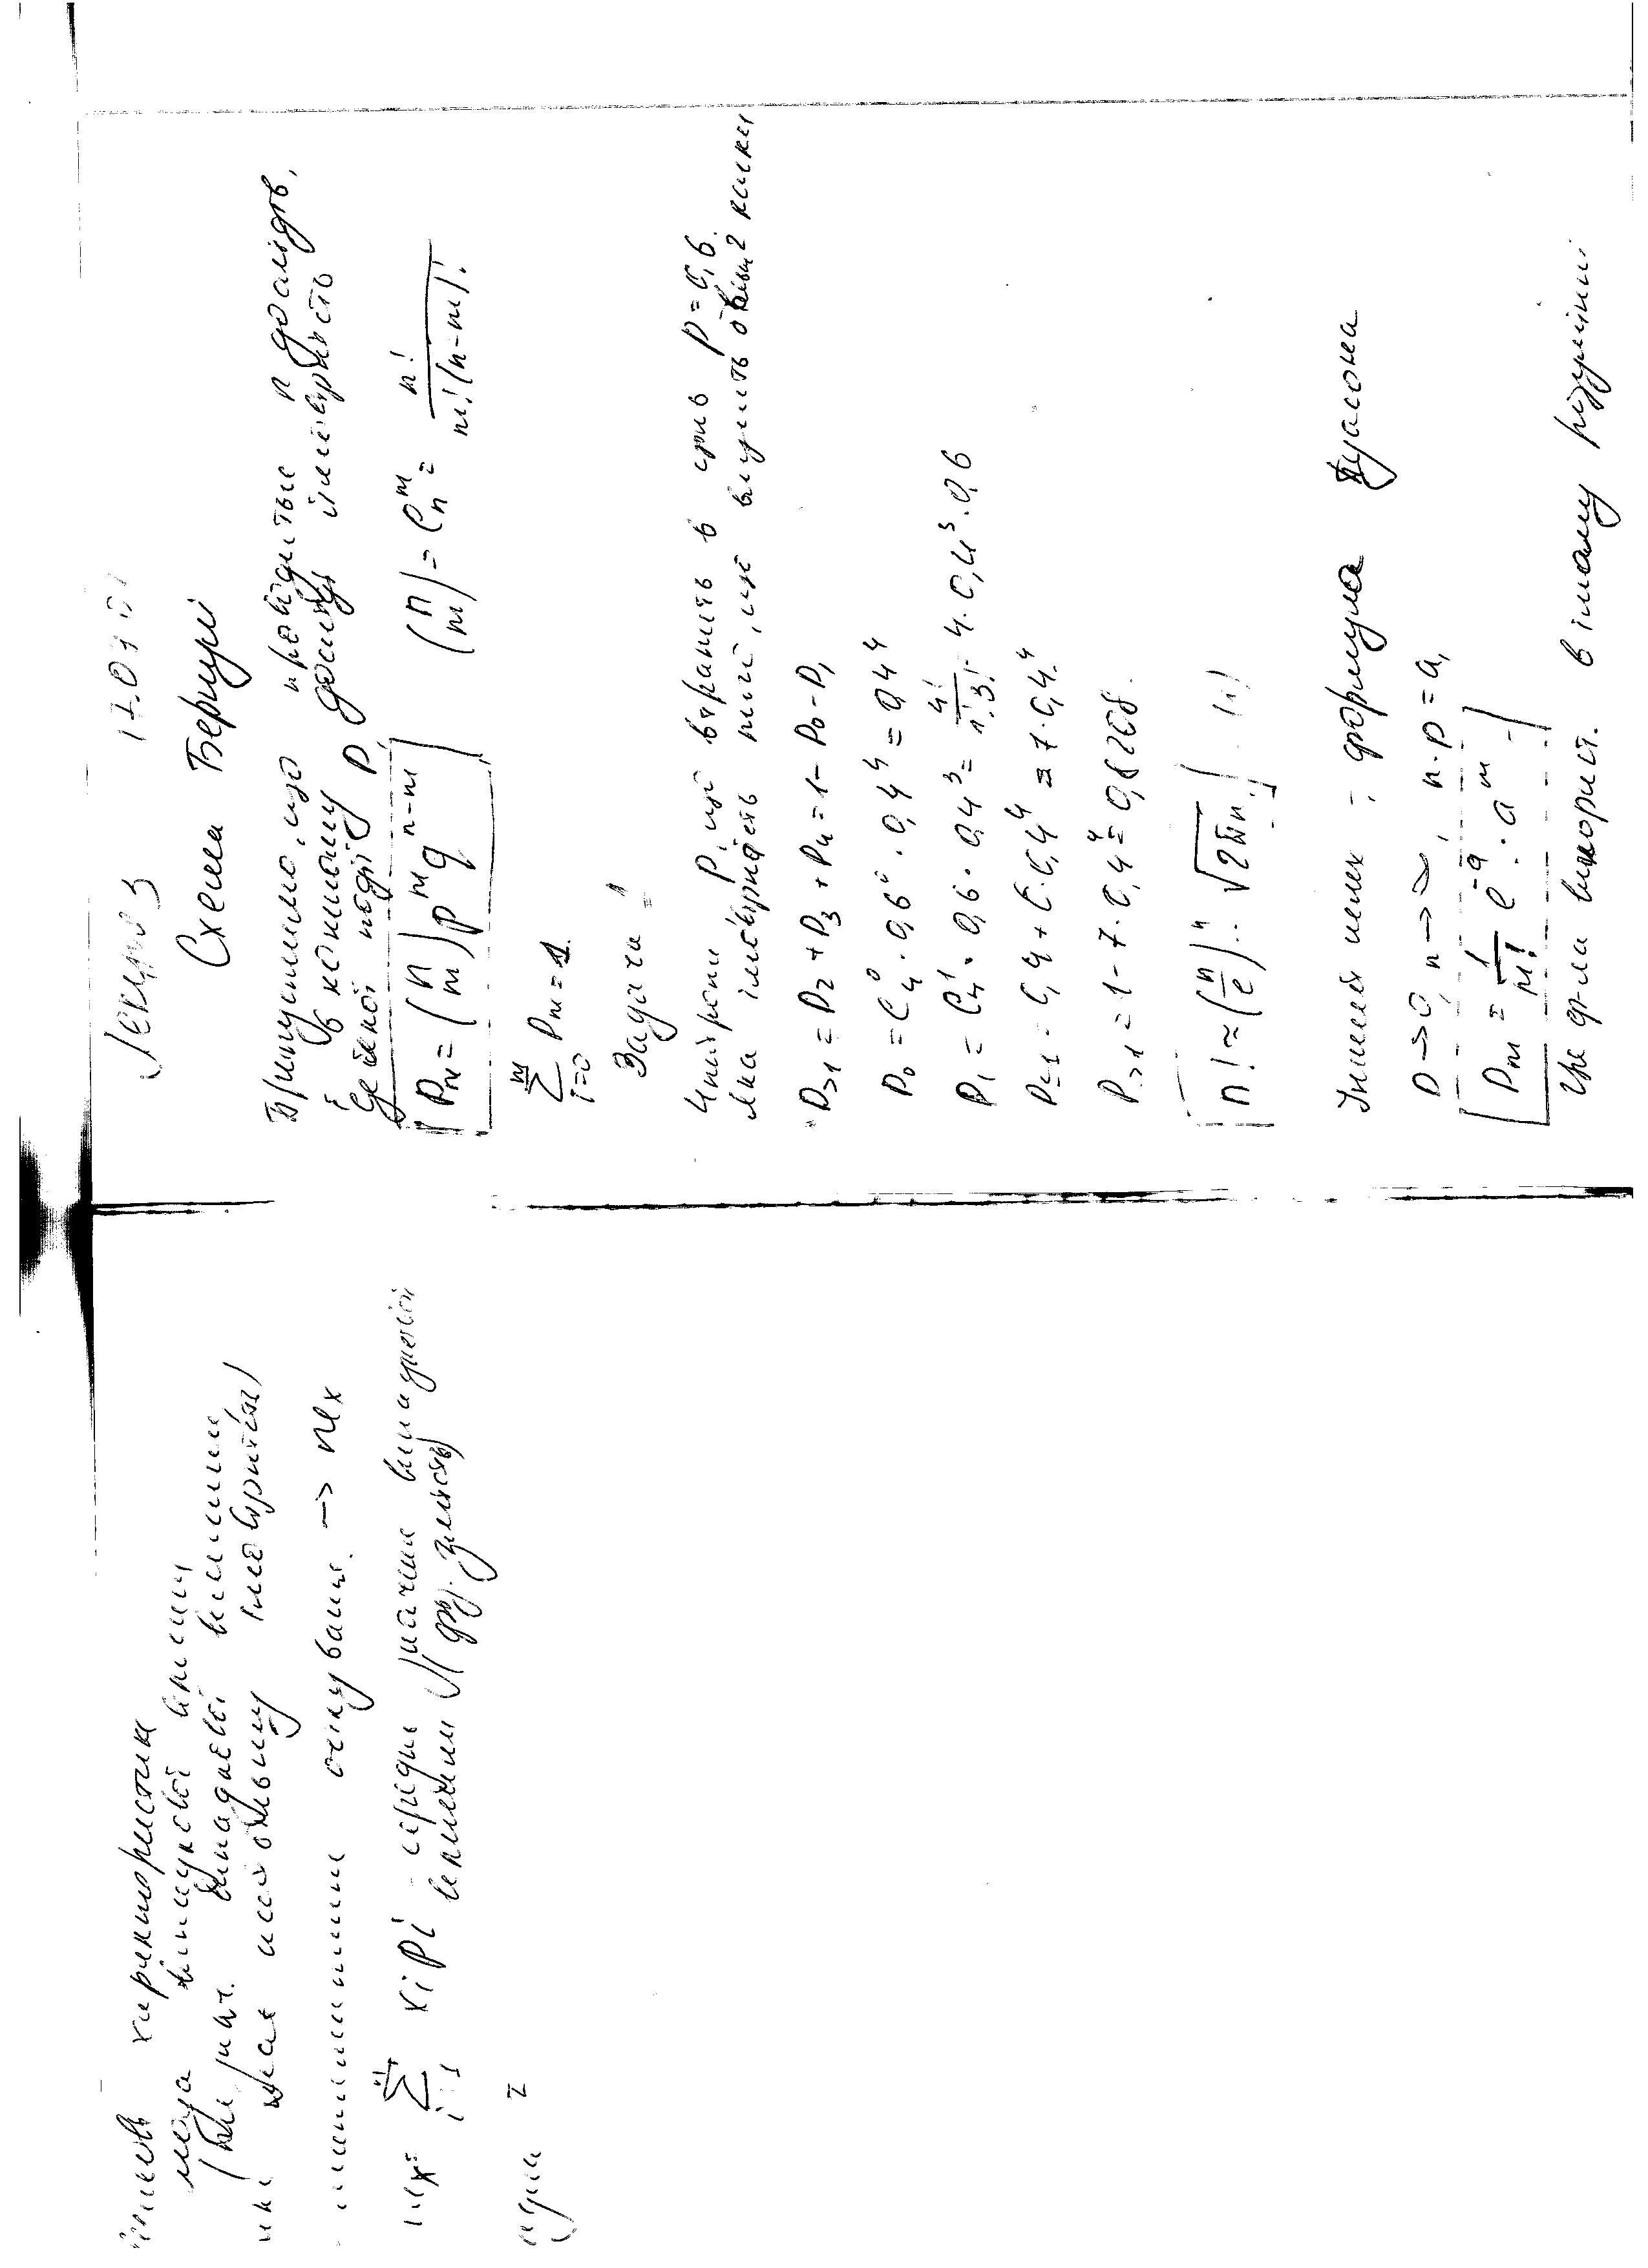 характеристики
мода випадкової величини
(таке знач. випадкової величини,
яке має найбільшу імовірність)
математичне очікування → mx
mx = ∑ i=1 n xi pi - середнє значення випадкової
величини (фіз. зміст)
=
Лекція 3 17.09.01
Схема Бернуллі
Припустимо, що проводиться n дослідів,
і в кожному досліді імовірність
деякої події p.
Pm = (n m) p^m q^n-m (n m) = C_n^m = n! / m!(n-m)!
∑ i=0 m Pm = 1.
Задача 1
4 патрони, p, що вгранить в ціль p = 0,6.
Яка імовірність того, що влучить більш 2 кульки
P>1 = P2 + P3 + P4 = 1 - P0 - P1
P0 = C_4^0 · 0,6^0 · 0,4^4 = 0,4^4
P1 = C_4^1 · 0,6 · 0,4^3 = 4! / 1!3! = 4 · 0,4^3 · 0,6
P≤1 = 0,4 + 6 · 0,4^4 = 7 · 0,4^4
P>1 = 1 - 7 · 0,4^4 = 0,8208.
n! ≈ (n/e)^n · √2πn
Інший шлях - формула Пуасона
p → 0, n → ∞, n · p = a,
Pm = 1/m! e^-a · a^m
Ця ф-ла використ. в такому розумінні